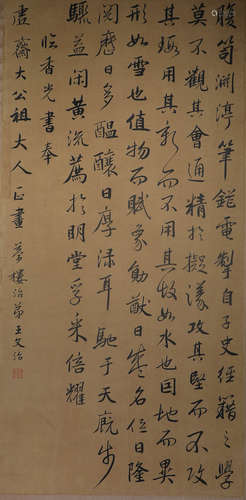 腹笥渊渟筆鎧電掣自子史經籍之學
莫不觀其會通精於擬議攻其堅而不攻
其瑕用其新而不用其故如水也因地而異
形如雪也值物而賦象勛猷日盛名位日隆
閱歷日多醞釀日厚渌耳馳于天廐步
驟益闲黄流薦於明堂孚采倍耀
临香光書奉
虚齋大公祖大人正畫 夢樓治弟王文治